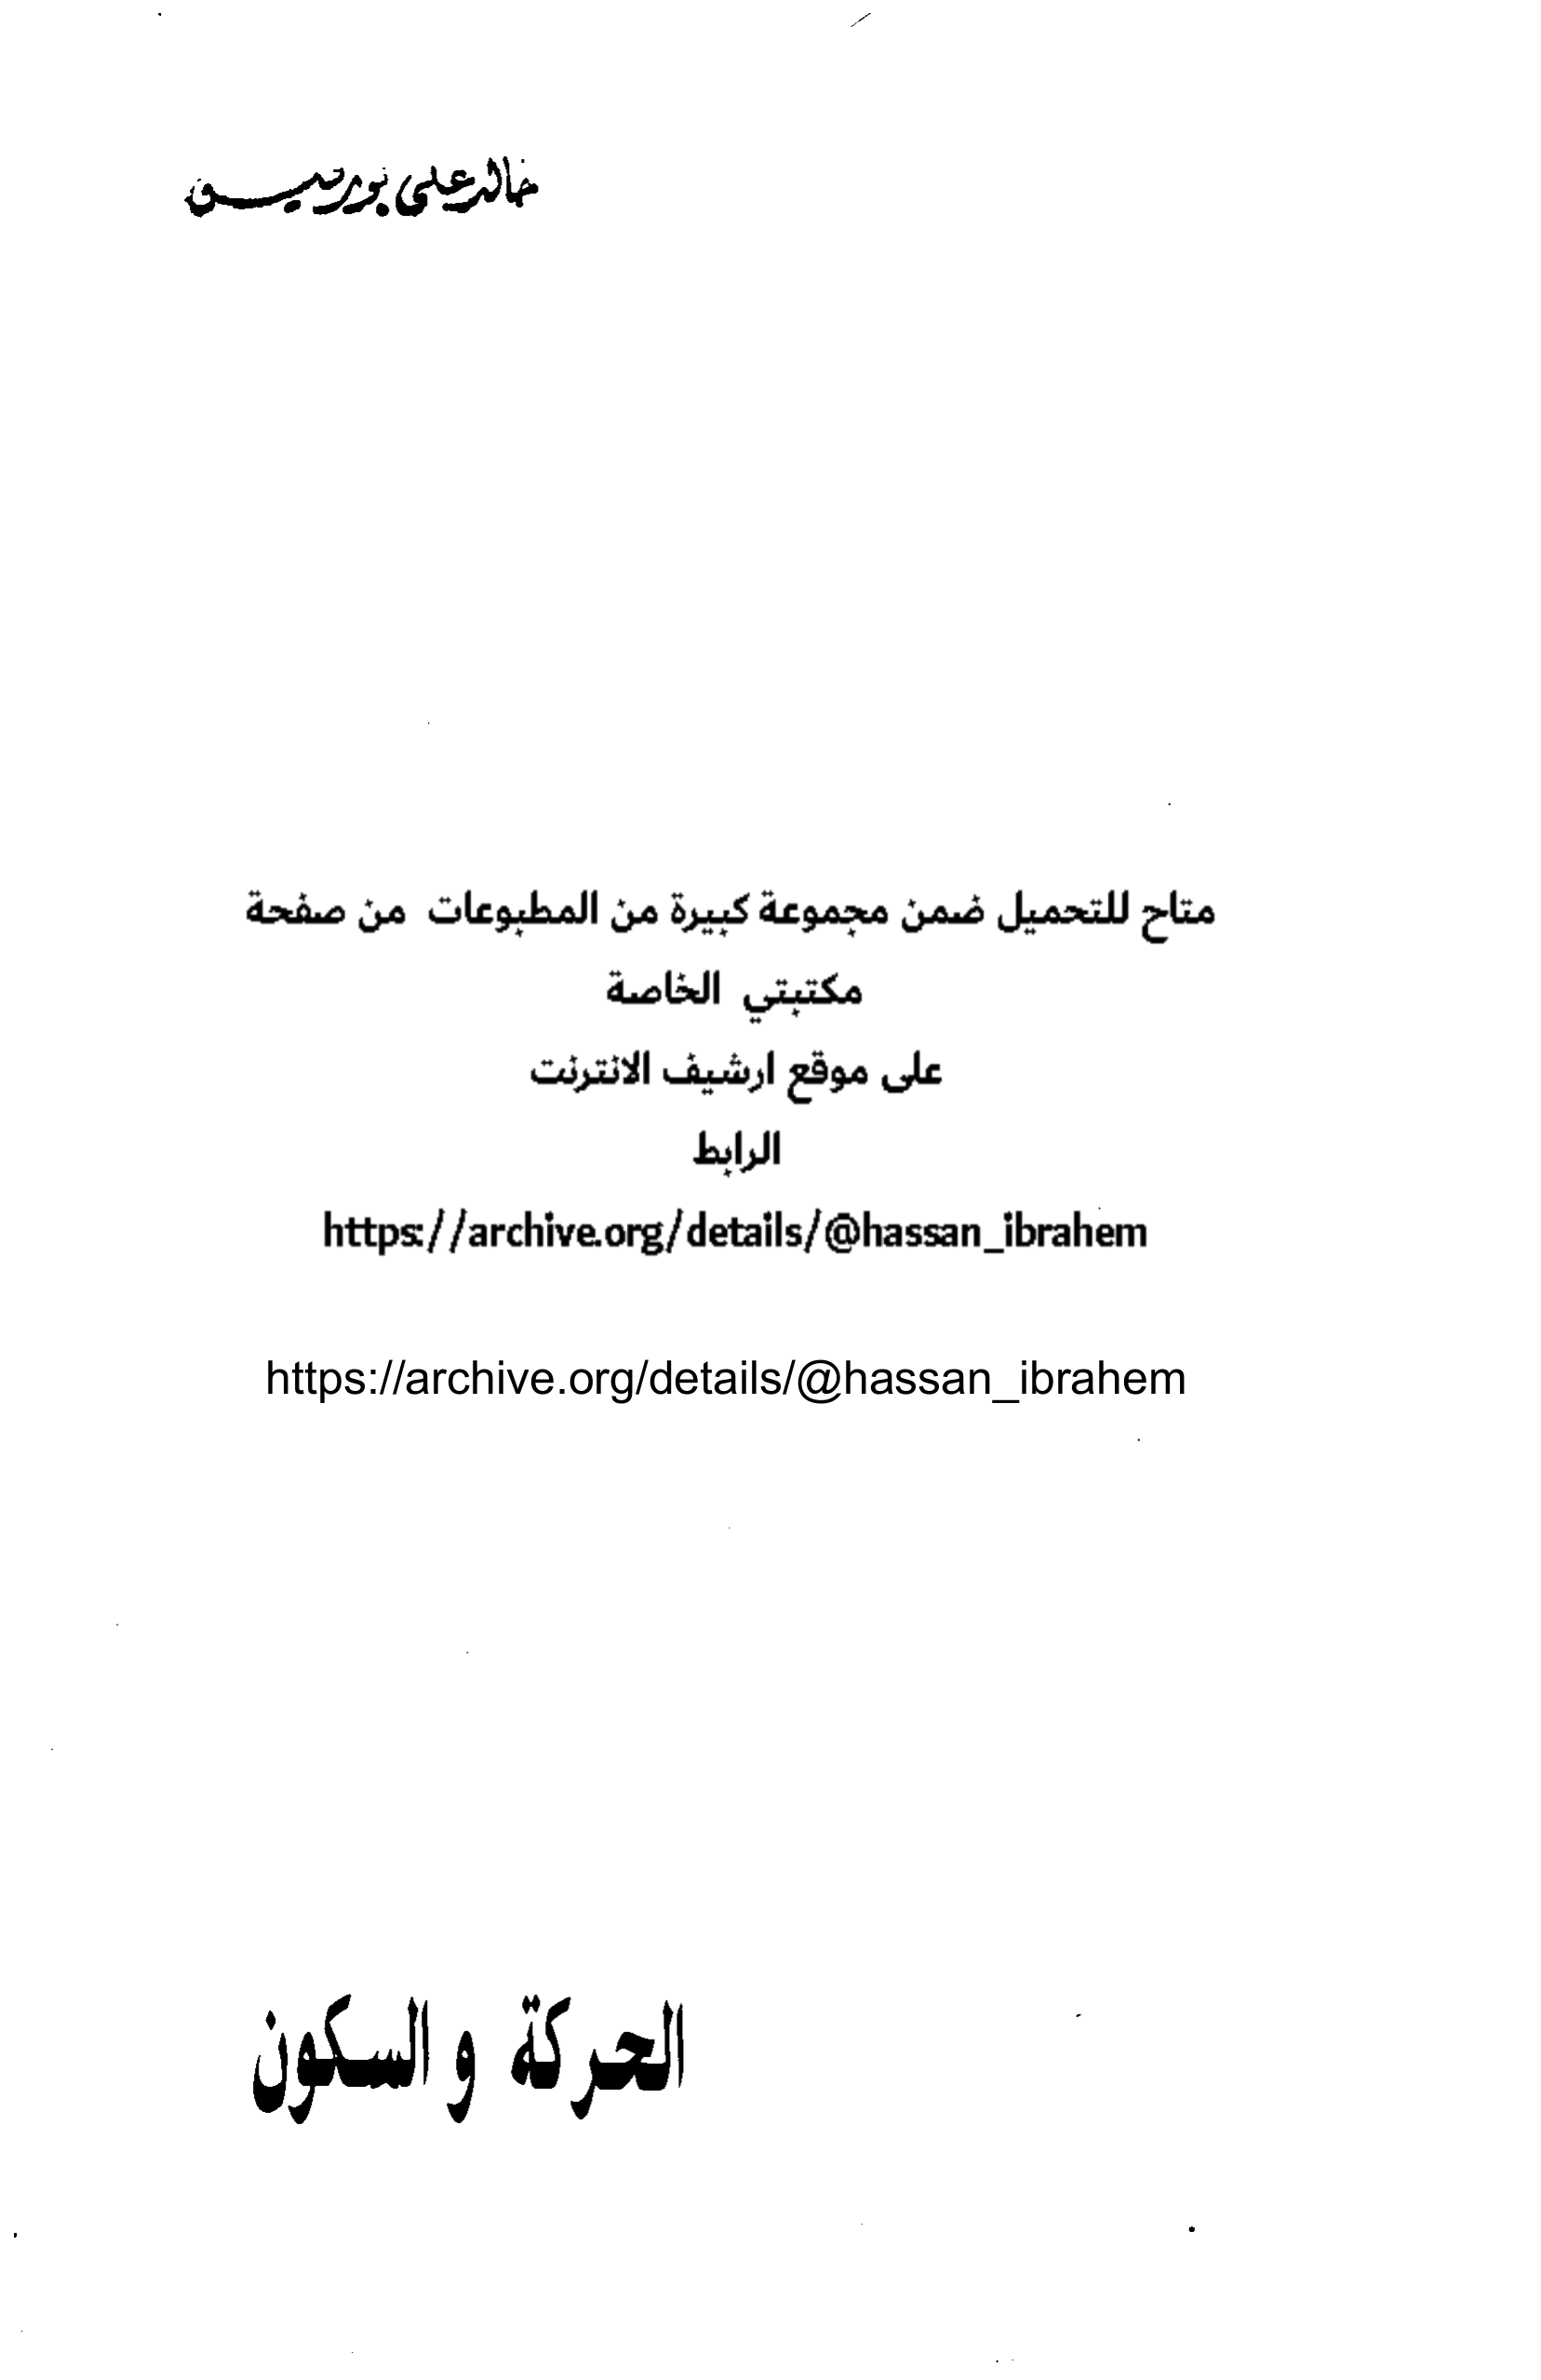 خالد علي بورسلي
متاح للتحميل ضمن مجموعة كبيرة من المطبوعات من صفحة
مكتبتي الخاصة
على موقع ارشيف الانترنت
الرابط
https://archive.org/details/@hassan_ibrahem
https://archive.org/details/@hassan_ibrahem
الحركة والسكون